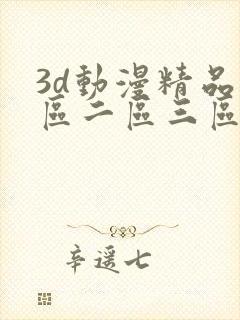 3d動漫精品
區二區三區
辛遥七